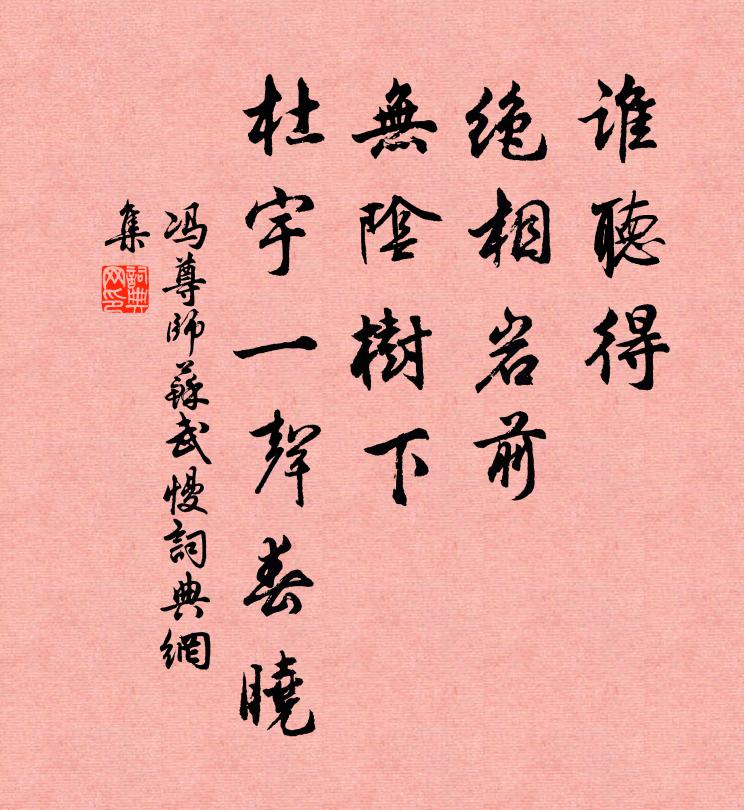 誰聽得
绝相岩前
無陰樹下
杜宇一聲春曉
冯尊師蘇武慢詞典網
集
詞典网印